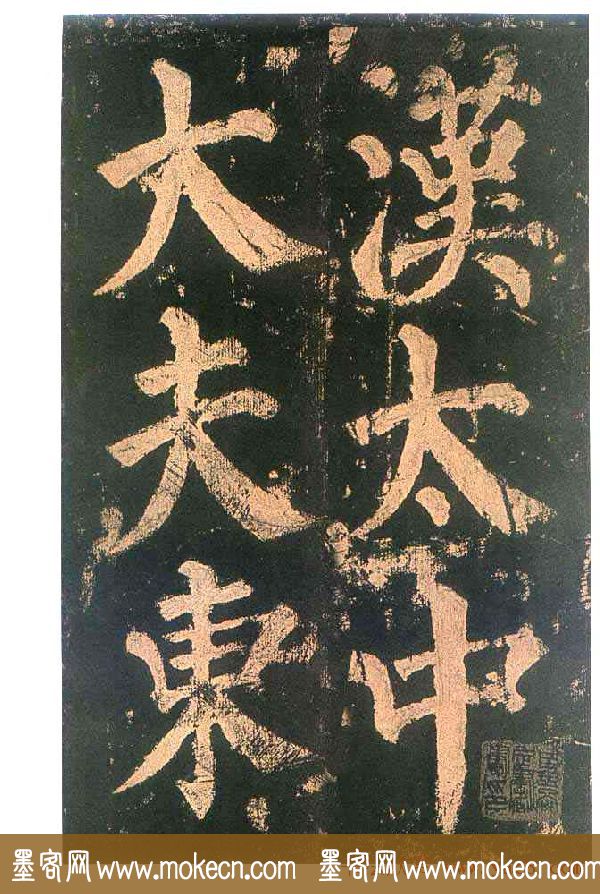 漢太中
大夫東
墨客网 www.mokecn.com 墨客网 www.mokecn.com